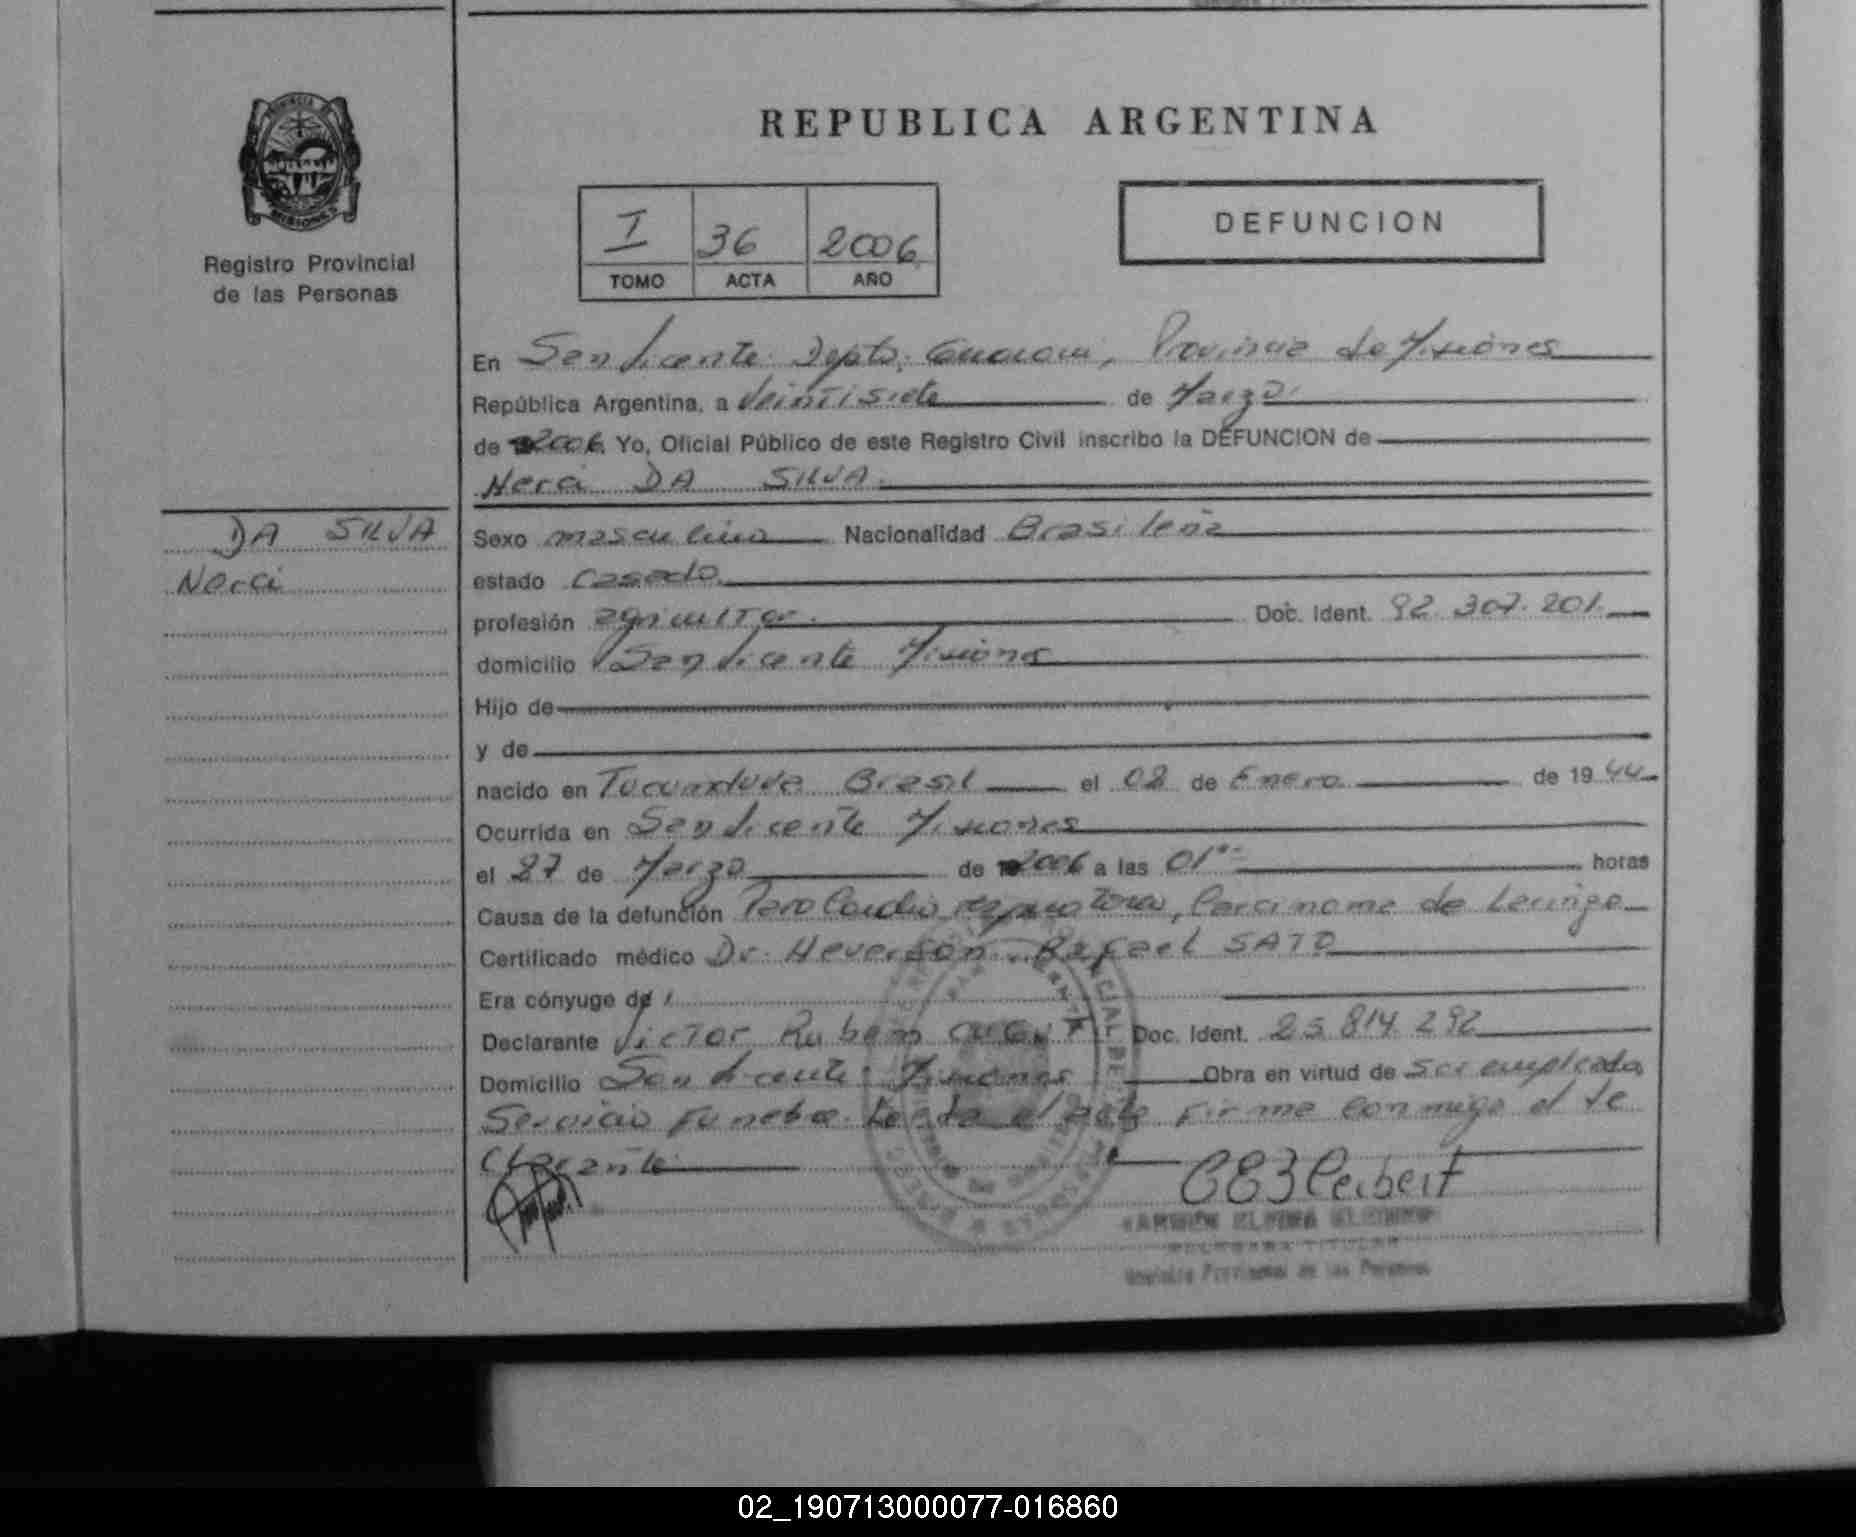 REPUBLICA ARGENTINA
Registro Provincial
de las Personas
I 36 2006
TOMO ACTA AÑO
DEFUNCION
En San Vicente Depto. Guarani, Provincia de Misiones
República Argentina, a Veintisiete de Marzo
de 2006 Yo, Oficial Público de este Registro Civil inscribo la DEFUNCION de
Nerci DA SILVA.
DA SILVA
Nerci
Sexo masculino Nacionalidad Brasileña
estado Casado.
profesión agricultor. Doc. Ident. 92.307.201.
domicilio San Vicente Misiones
Hijo de
y de
nacido en Tucunduva Brasil el 08 de Enero de 1944
Ocurrida en San Vicente Misiones
el 27 de Marzo de 2006 a las 01 horas
Causa de la defunción Paro Cardio respiratorio, Carcinoma de Laringe
Certificado médico Dr. Heverson Rafael SATO
Era cónyuge de
Declarante Victor Ruben Doc. Ident. 25.814.292
Domicilio San Vicente Misiones Obra en virtud de ser empleado
Servicio Funebre. Leida el acta Firma conmigo el de
clarante.
Registro Provincial de las Personas
02_190713000077-016860